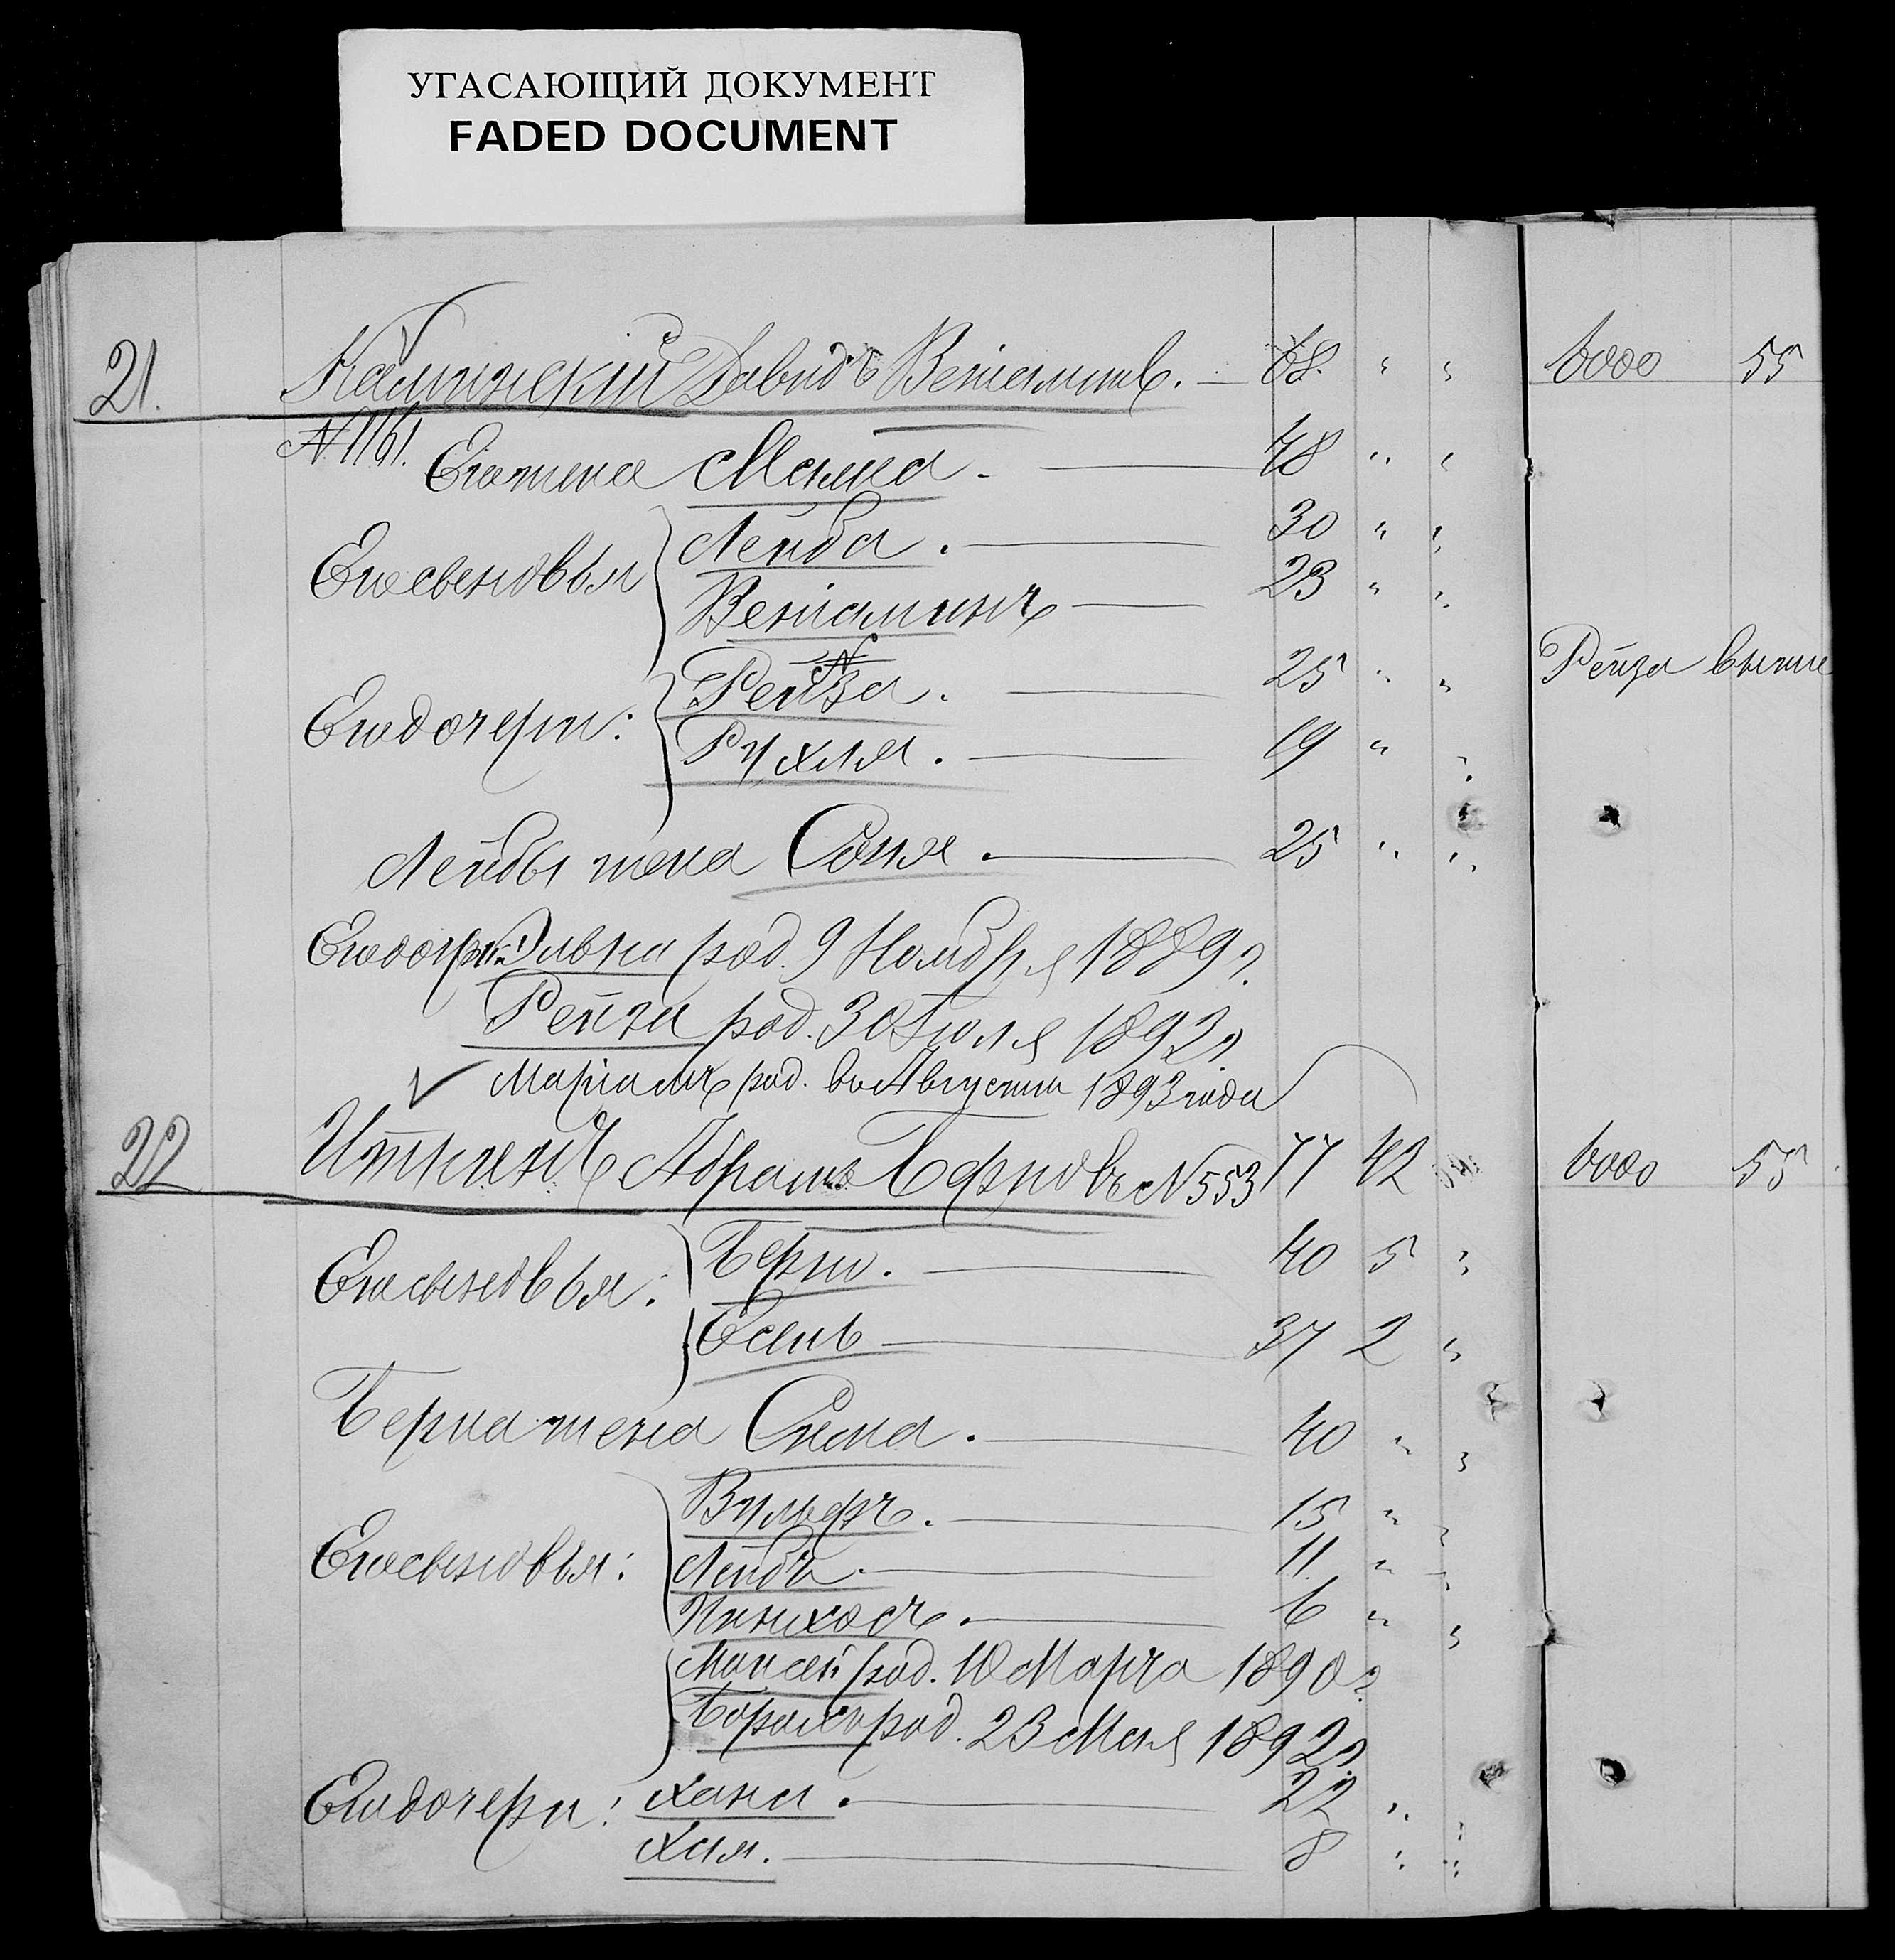 УГАСАЮЩИЙ ДОКУМЕНТ
FADED DOCUMENT
21. Калинский Давидъ Веніамин. — 68. " " 6000 55
N 1161. Его жена Масица. — 48 " "
Его сыновья Лейба. — 30 " "
Веніаминъ — 23 " "
Его дочери: Рейза. — 25 " " Рейза
Рухля. — 19 " "
Лейбы жена Соня. — 25 " "
Его дочери: род. 9 Ноября 1889 г.
Рейза род. 30 Іюля 1892 г.
✓ Маріамъ род. въ Августѣ 1893 года
22 Абрамъ Берковъ N 553 77 42 6000 55
Его сыновья: Берко. — 40 5 "
Есель — 37 2 "
Берка жена — 40 " "
Его сыновья: Вульфъ. — 15 " "
Лейба. — 11 " "
Пинхосъ. — 6 " "
Моисей род. 10 Марта 1890 г.
Борохъ род. 23 Мая 1892 г.
Его дочери: Хана. — 22 " "
Хая. — 8 " "